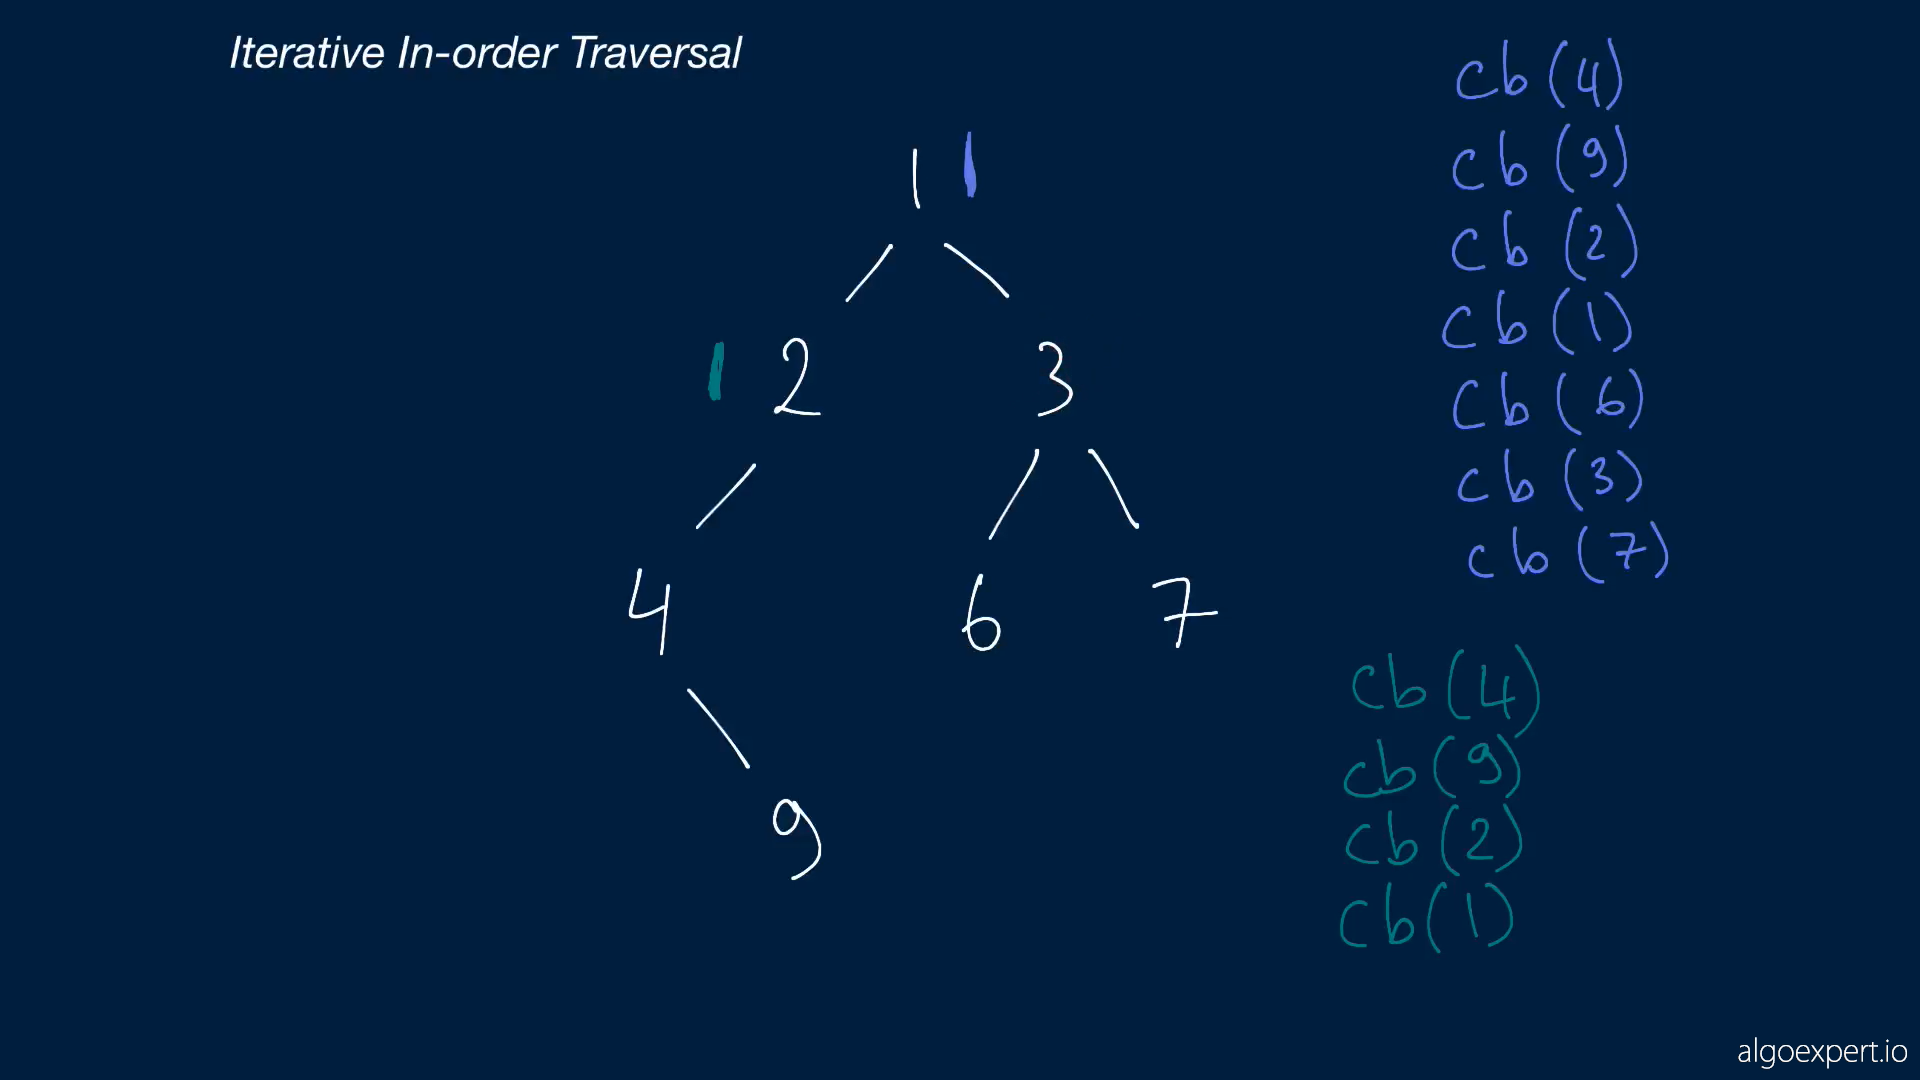 Iterative In-order Traversal
1
2 3
4 6 7
9
cb (4)
cb (9)
cb (2)
cb (1)
cb (6)
cb (3)
cb (7)
cb (4)
cb (9)
cb (2)
cb (1)
algoexpert.io